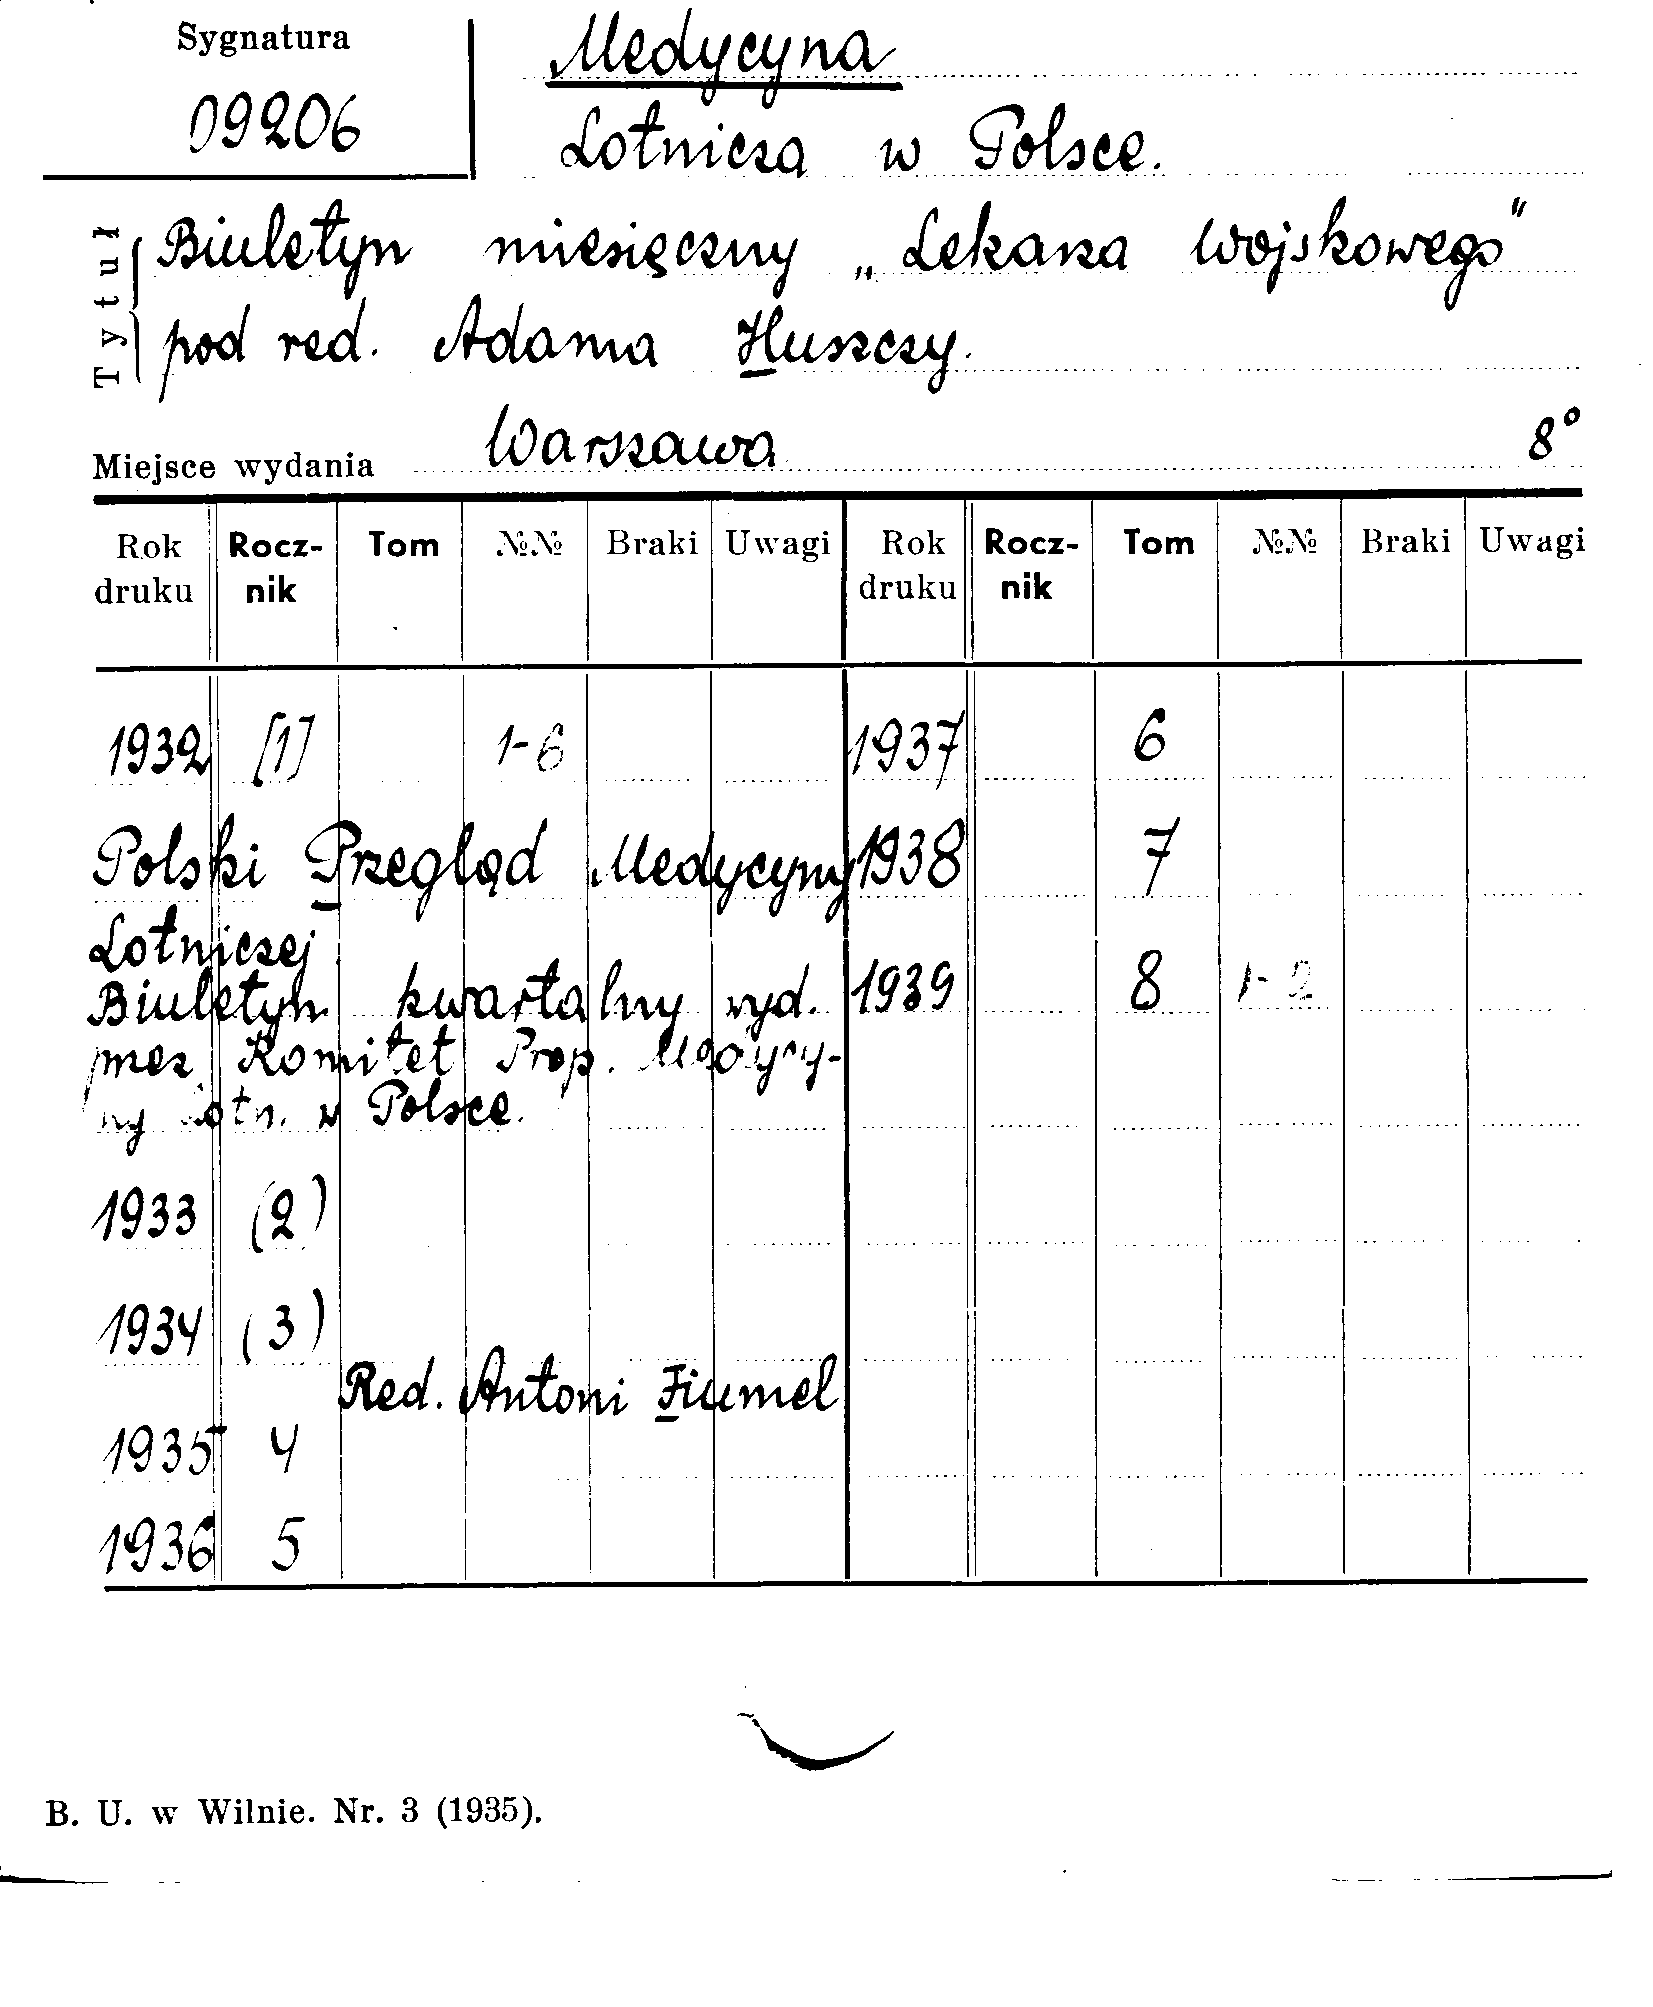 Sygnatura
09206
Medycyna
Lotnicza w Polsce.
Tytuł
Biuletyn miesięczny „Lekarza Wojskowego"
pod red. Adama Huszczy.
Miejsce wydania Warszawa 8°
Rok druku Rocz-nik Tom №№ Braki Uwagi Rok druku Rocz-nik Tom №№ Braki Uwagi
1932 [1] 1-6 1937 6
Polski Przegląd Medycyny 1938 7
Lotniczej
Biuletyn kwartalny wyd. 1939 8 1-2
przez Komitet Prop. Medycy-
ny Lotn. w Polsce.
1933 (2)
1934 (3)
Red. Antoni Fiumel
1935 4
1936 5
B. U. w Wilnie. Nr. 3 (1935).